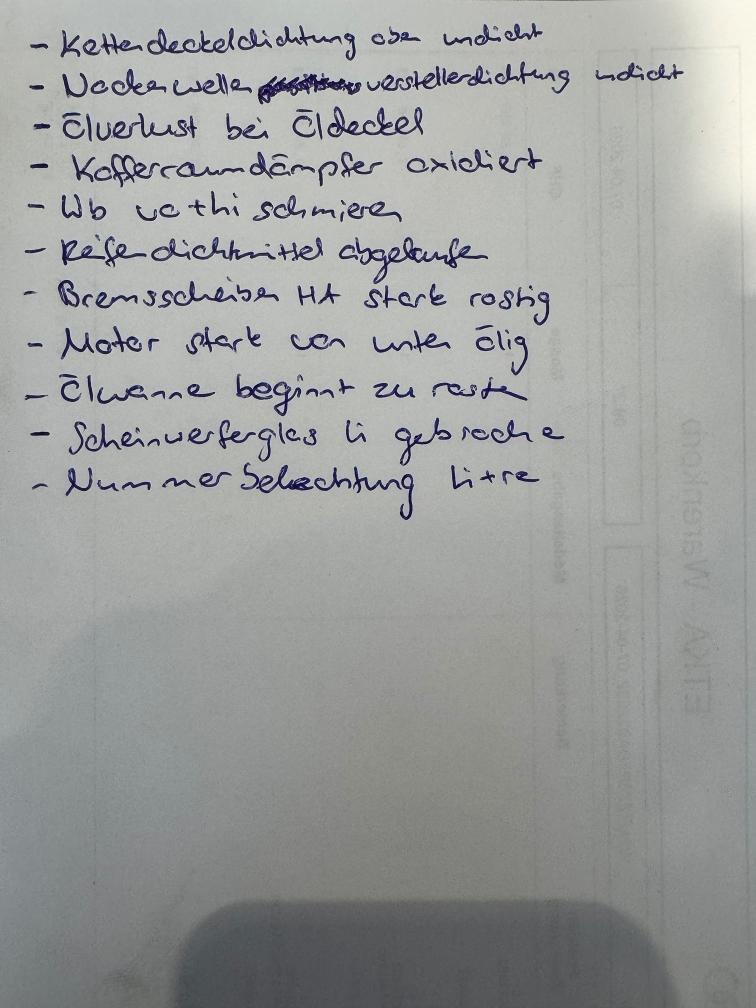 - Kettendeckeldichtung oben undicht
- Nockenwellen verstellerdichtung undicht
- Ölverlust bei Öldeckel
- Kofferraumdämpfer oxidiert
- Wb vo + hi schmieren
- Reifendichtmittel abgelaufen
- Bremsscheiben HA stark rostig
- Motor stark von unten ölig
- Ölwanne beginnt zu rosten
- Scheinwerferglas li gebroche
- Nummerbeleuchtung li+re
ETKA - Warenkorb